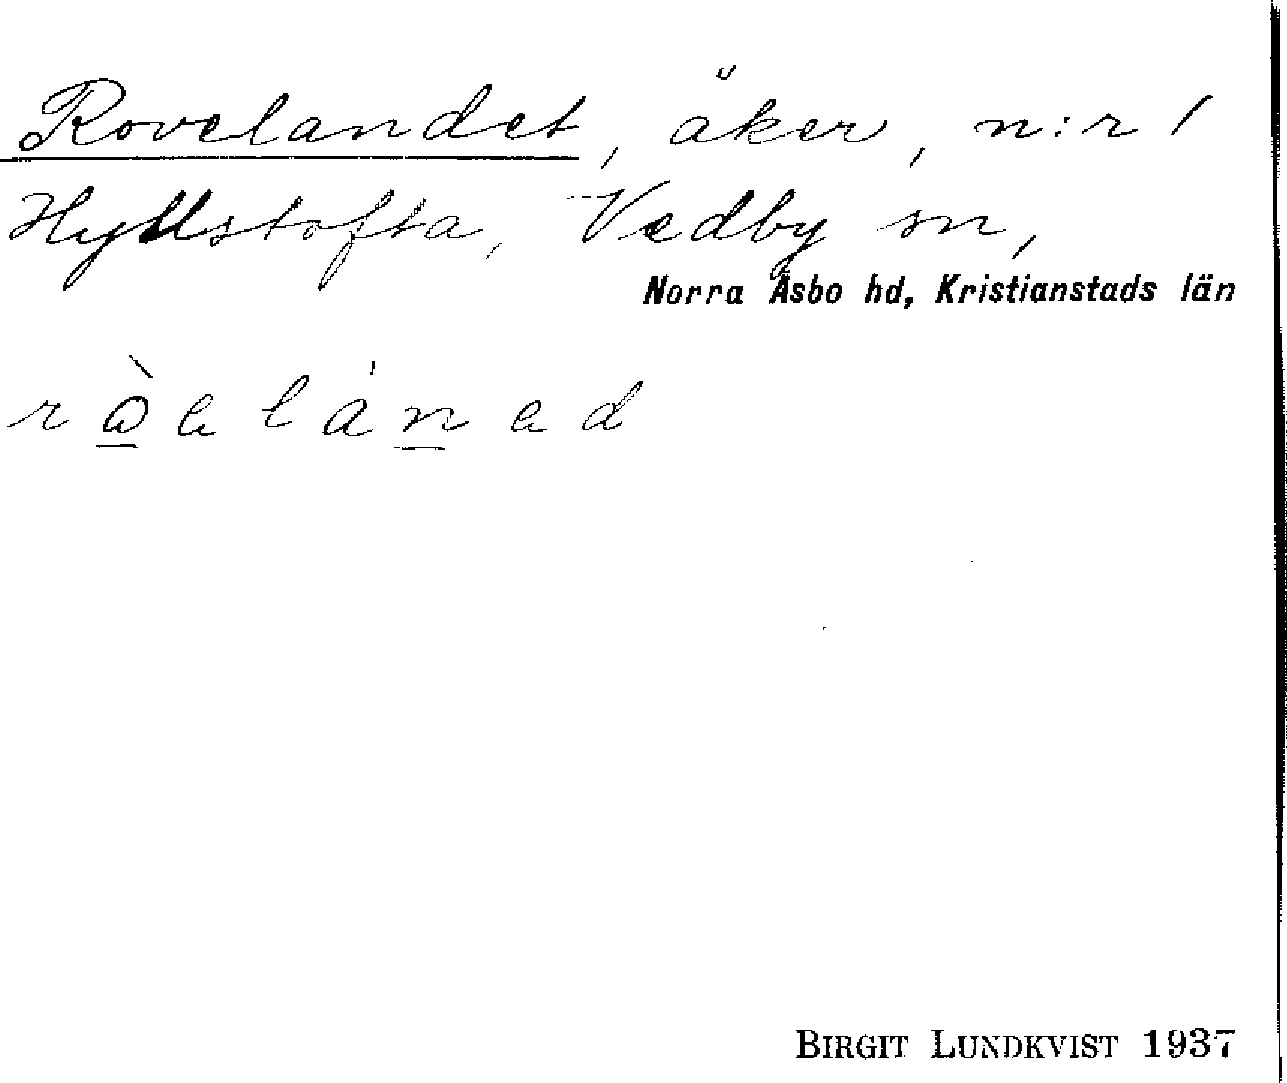 Rovelandet, åker, n:r 1
Hyllstofta, Vedby sn,
Norra Åsbo hd, Kristianstads län
BIRGIT LUNDKVIST 1937